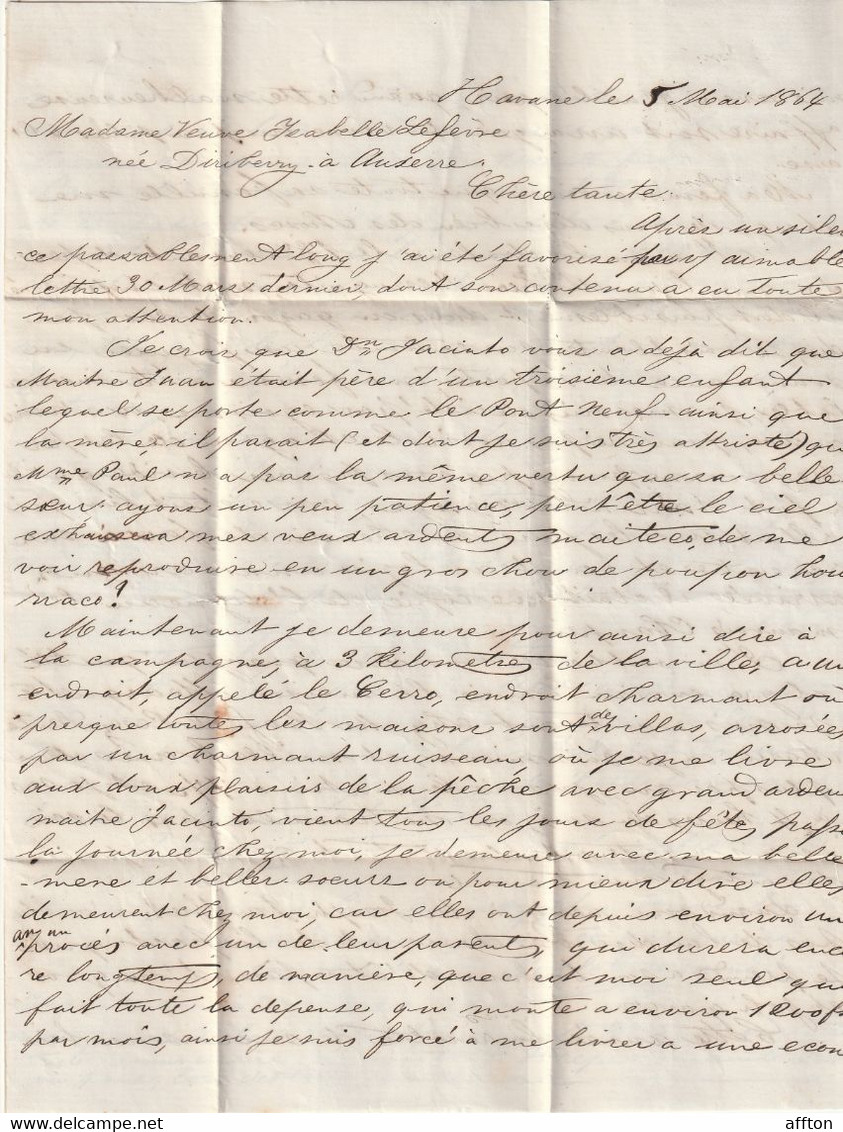 Havane le 5 Mai 1864
Madame Veuve Isabelle Lefèvre
née Diriberry à Auxerre.
Chère tante:
Après un silen
-ce passablement long j'ai été favorisé par v/ aimable
lettre 30 Mars dernier, dont son contenu a eu toute
mon attention.
Je crois que Dn Jacinto vous a déjà dit que
Maitre Juan était père d'un troisième enfant
lequel se porte comme le Pont Neuf ainsi que
la mère, il parait (et dont je suis très attristé) qu
Mme Paul n'a pas la même vertu que sa belle
sœur ayons un peu patience, peut être le ciel
exhaussera mes veux ardents, de me
voir reproduire en un gros chou de poupon hou
rraco!
Maintenant je demeure pour ainsi dire à
la campagne, à 3 Kilometres de la ville, a un
endroit, appelé le Cerro, endroit charmant où
presque toutes les maisons sont des villas, arrosées
par un charmant ruisseau, où je me livre
aux doux plaisirs de la pêche avec grand ardeu
maitre Jacinto, vient tous les jours de fêtes passe
la journée chez moi, je demeure avec ma belle
-mere et belles soeurs ou pour mieux dire elles
demeurent chez moi, car elles ont depuis environ un
an un procés avec un de leur parents, qui durera enco
re longtemps, de manière, que c'est moi seul qui
fait toute la depense, qui monte a environ 1200 f
par mois, ainsi je suis forcé à me livrer a une econ
DELCAMPE.NET
affton